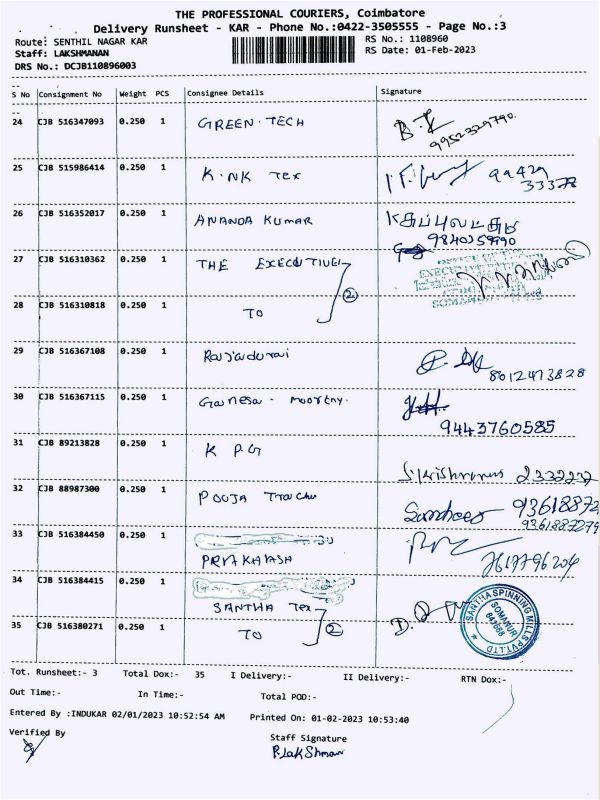 THE PROFESSIONAL COURIERS, Coimbatore
Delivery Runsheet - KAR - Phone No.:0422-3505555 - Page No.:3
Route: SENTHIL NAGAR KAR
RS No.: 1108960
Staff: LAKSHMANAN
RS Date: 01-Feb-2023
DRS No.: DCJB110896003
S No Consignment No Weight PCS Consignee Details Signature
24 CJB 516347093 0.250 1 GREEN TECH 9952329790
25 CJB 515986414 0.250 1 K.NK Tex 99429
33378
26 CJB 516352017 0.250 1 ANANDA KUMAR
27 CJB 516310362 0.250 1 THE EXECUTIVE
28 CJB 516310818 0.250 1 TO 2
29 CJB 516367108 0.250 1 Rajadurai 8012473828
30 CJB 516367115 0.250 1 Ganesa moorthy. 9443760585
31 CJB 89213828 0.250 1 K P G 2332227
32 CJB 88987300 0.250 1 POOJA
33 CJB 516384450 0.250 1
34 CJB 516384415 0.250 1
SANTHA Tex
35 CJB 516380271 0.250 1 TO 2
SANTHA SPINNING MILLS PVT.LTD
SOMANUR
641668
Tot. Runsheet:- 3 Total Dox:- 35 I Delivery:- II Delivery:- RTN Dox:-
Out Time:- In Time:- Total POD:-
Entered By :INDUKAR 02/01/2023 10:52:54 AM Printed On: 01-02-2023 10:53:40
Verified By
Staff Signature
P.LakShman